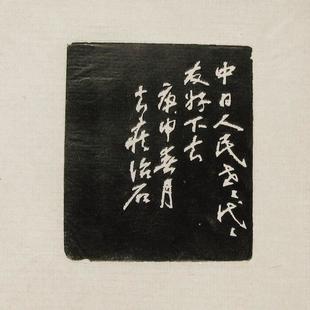 中日人民世〻代〻
友好下去
庚申春月
去疾治石